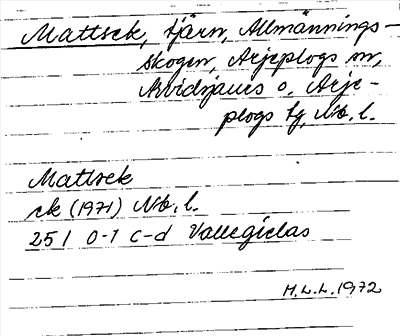 Mattsek, tjärn, Allmännings-
skogen, Arjeplogs sn,
Arvidsjaurs o. Arje-
plogs tg, Nb. l.
Mattsek
ek (1971) Nb. l.
25 I 0-1 c-d Vallegielas
H.L.L. 1972